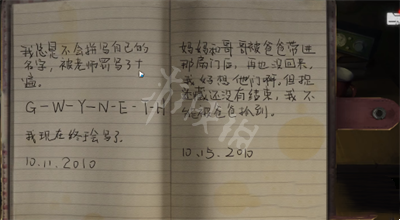 我总是不会拼写自己的
名字，被老师罚写了十
遍。
G-W-Y-N-E-T-H
我现在终于会写了。
10.11.2010
妈妈和哥哥被爸爸带进
那扇门后，再也没回来，
我好想他们啊，但捉
迷藏还没有结束，我不
能被爸爸捡到。
10.15.2010
游侠